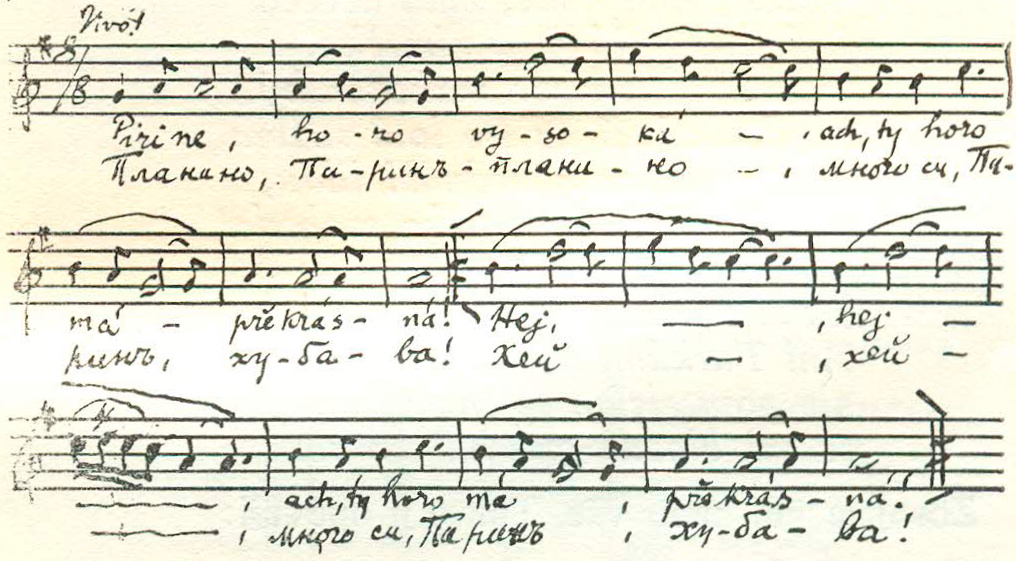 Vivo!
9/8
Pirine, ho-ro vy-so-ká - , ach, ty horo
Планино, Пи-ринъ-плани-но - , много си, Пи-
má - překrás-ná! Hej, — , hej —
ринъ, ху-ба-ва! Хей — , хей —
— , ach, ty horo má , překrás-ná!
— , много си, Пиринъ , ху-ба-ва!